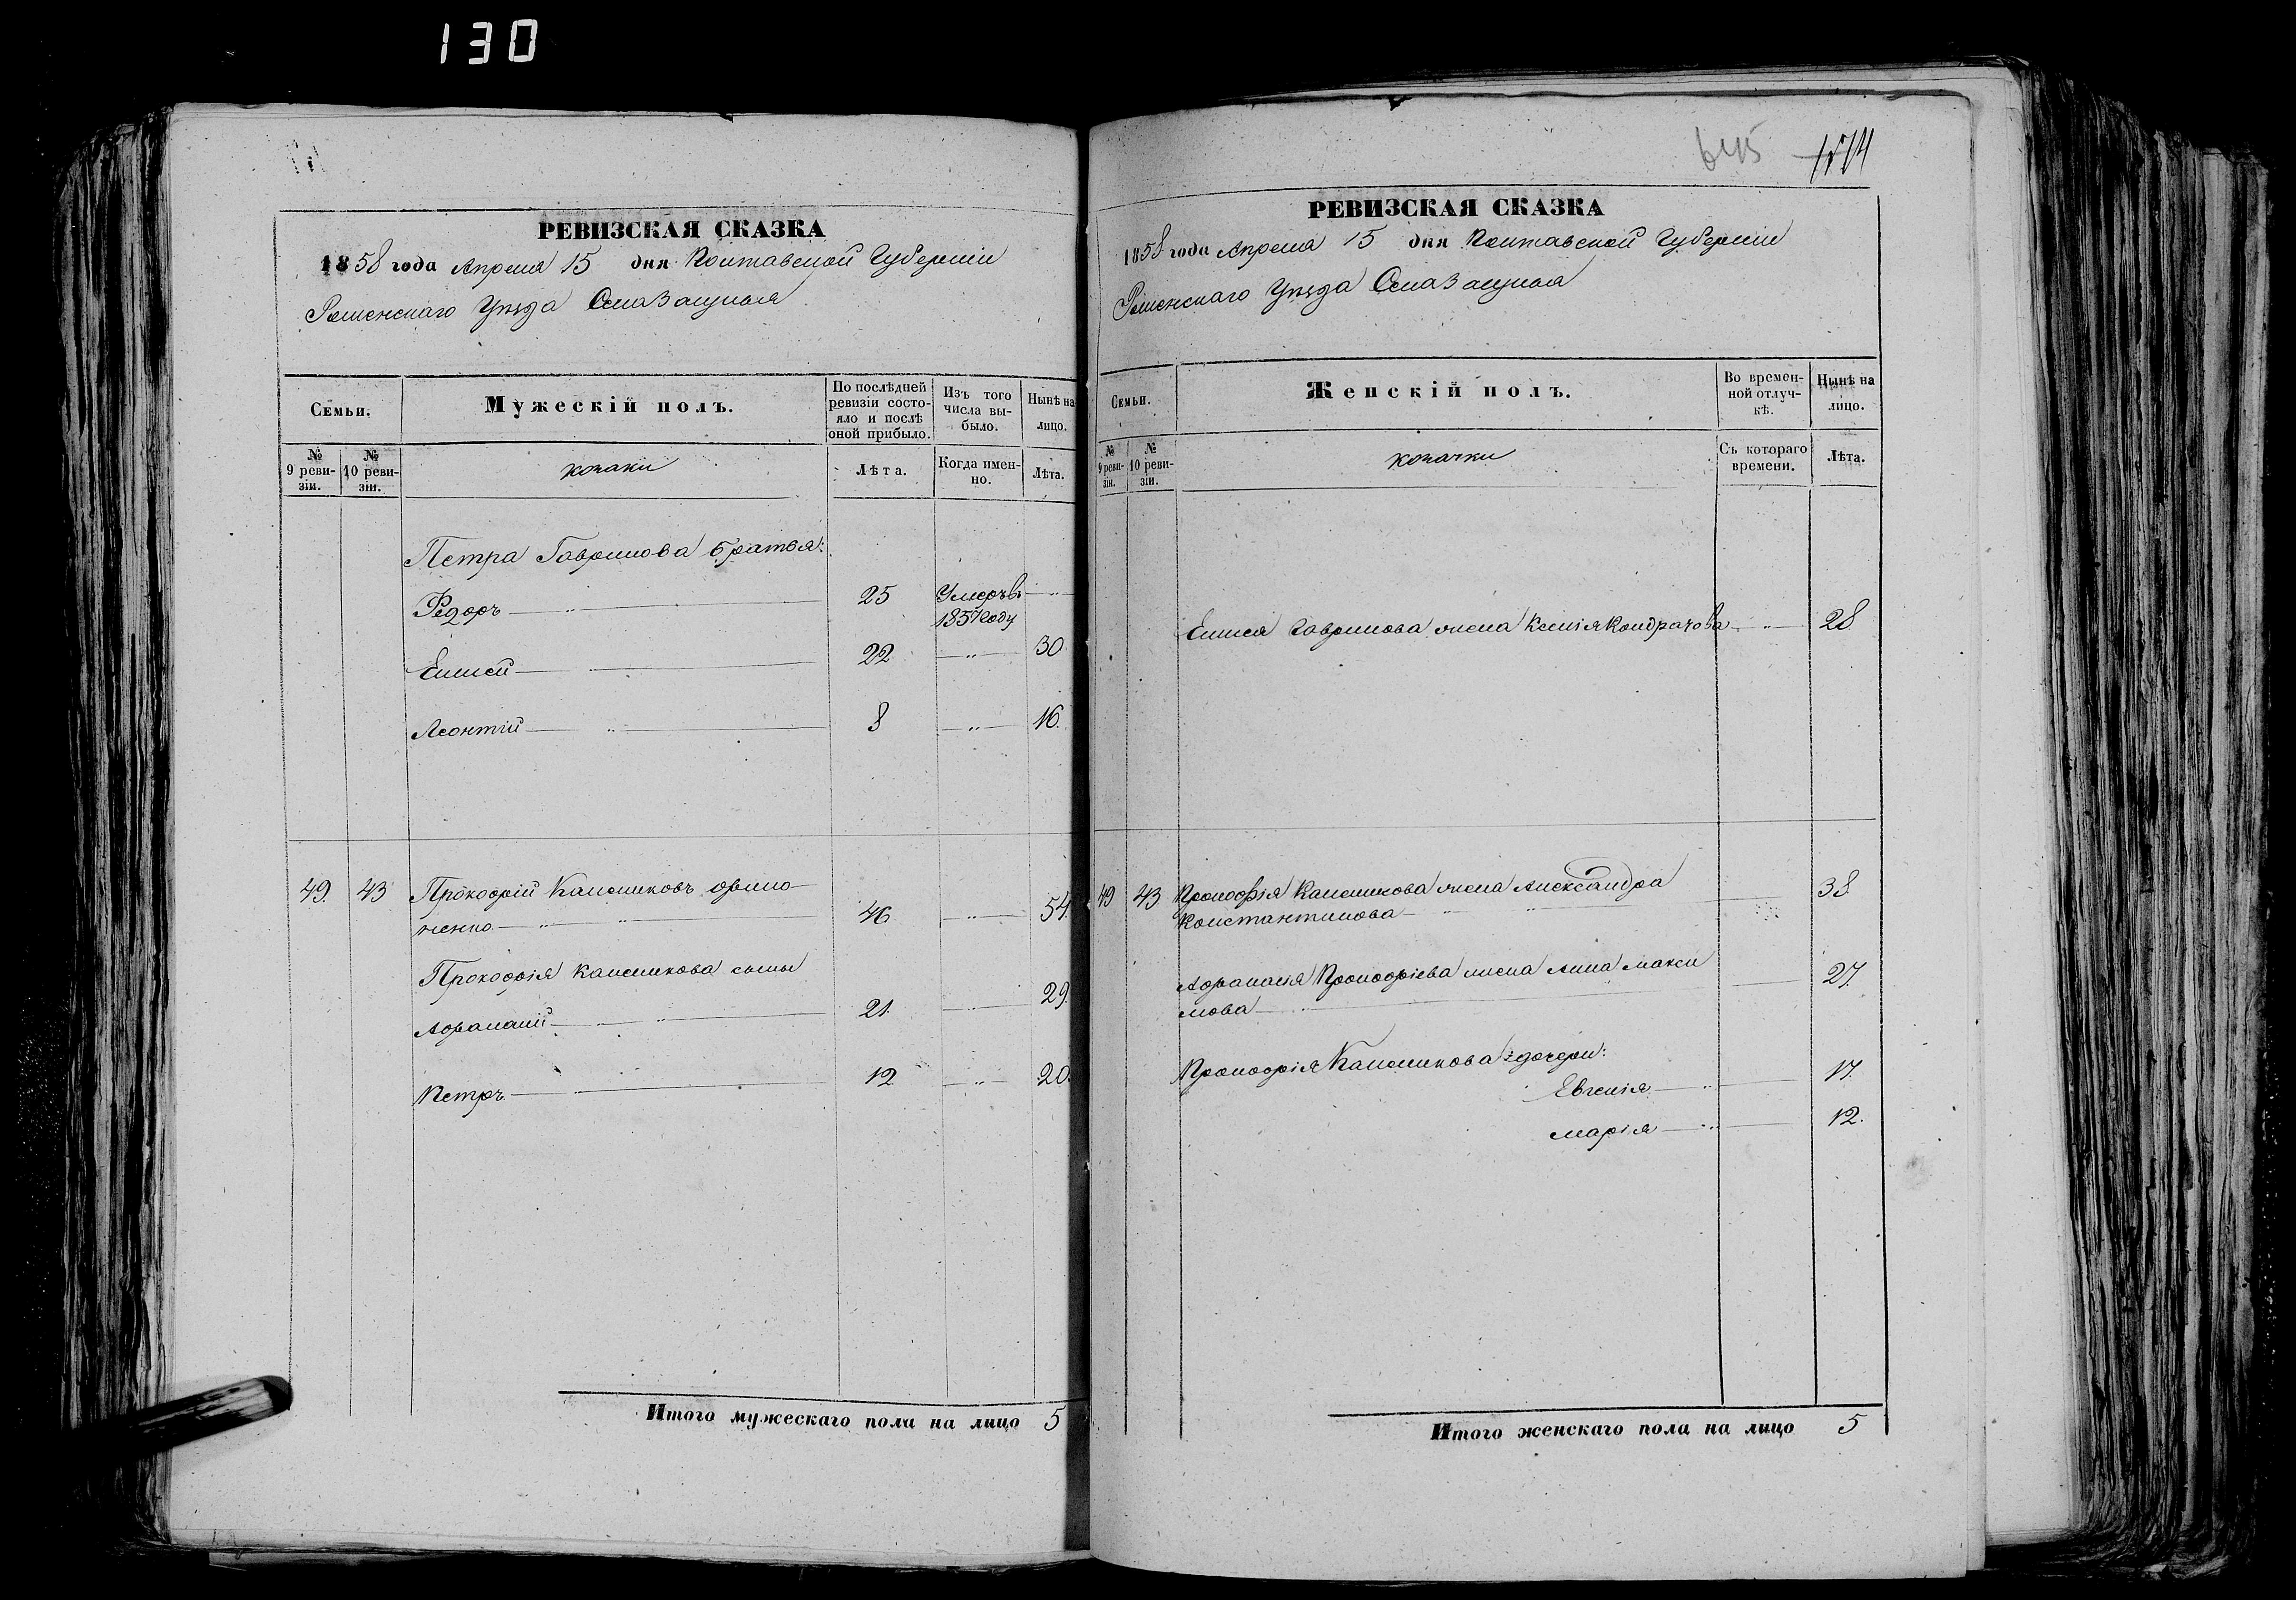 130
РЕВИЗСКАЯ СКАЗКА
1858 года Апреля 15 дня Полтавской Губерніи
Роменскаго Уѣзда Села Засулья
Семьи.
Мужескій полъ.
По послѣдней ревизіи состояло и послѣ оной прибыло.
Изъ того числа выбыло.
Нынѣ на лицо.
№ 9 ревизіи.
№ 10 ревизіи.
козаки
Лѣта.
Когда именно.
Лѣта.
Петра Гаврилова братья:
Федоръ 25 Умеръ въ 1857 году
Елисей 22 30
Леонтій 8 16.
49. 43 Прокофій Калениковъ
ченко 46 54.
Прокофія Каленикова сыны
Афанасій 21. 29.
Петръ 12 20.
Итого мужескаго пола на лицо 5
645 1514
РЕВИЗСКАЯ СКАЗКА
1858 года Апреля 15 дня Полтавской Губерніи
Роменскаго Уѣзда Села Засулья
Семьи.
Женскій полъ.
Во временной отлучкѣ.
Нынѣ на лицо.
№ 9 ревизіи.
№ 10 ревизіи.
козачки
Съ котораго времени.
Лѣта.
Елисея Гаврилова жена Ксенія Кондратова 28
49 43 Прокофія Каленикова жена Александра 38
Константинова
Афанасія Прокофіева жена Анна Макси 27.
мова
Прокофія Каленикова дочери:
Евгенія 17.
Марія 12.
Итого женскаго пола на лицо 5